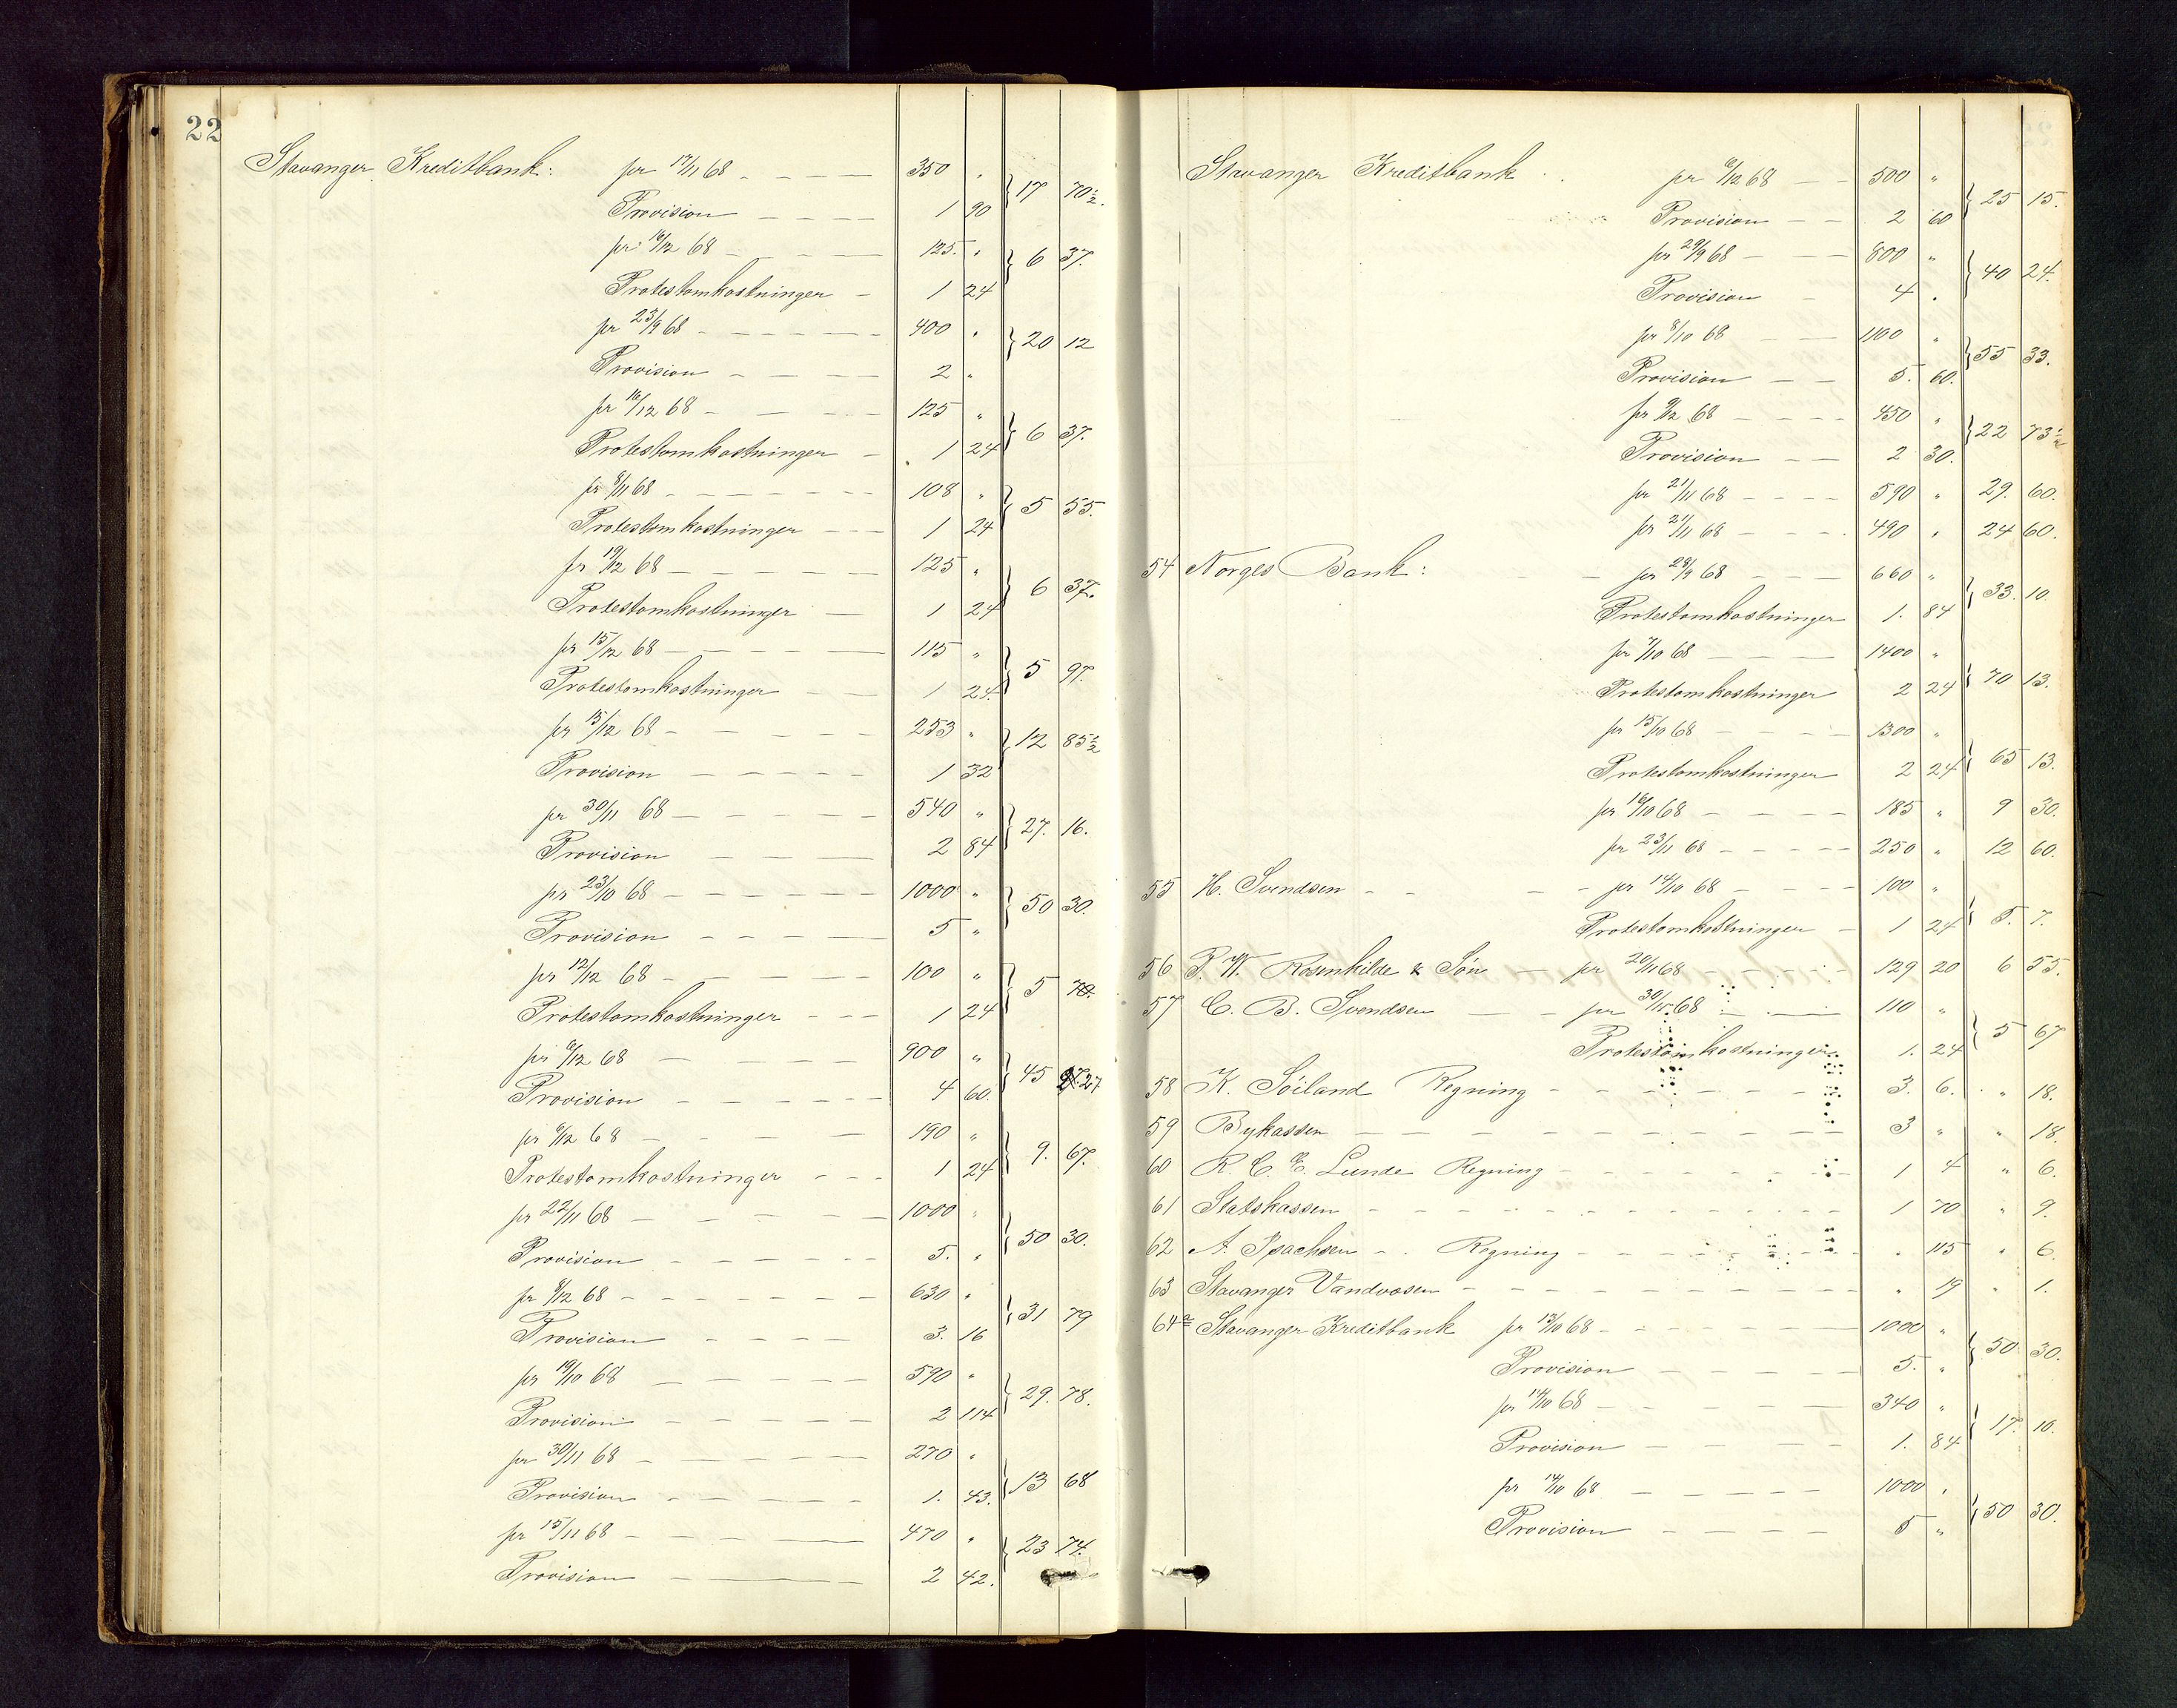 22
Stavanger Kreditbank: pr 17/11 68 350 " } 17 70½.
Provision 1 90
pr 16/12 68 125. " } 6 37.
Protestomkostninger 1 24
pr 23/9 68 400 " } 20 12
Provision 2 "
pr 16/12 68 125 " } 6 37.
Protestomkostninger 1 24
pr 8/11 68 108 " } 5 55.
Protestomkostninger 1 24
pr 19/12 68 125 " } 6 37.
Protestomkostninger 1 24
pr 15/12 68 115 " } 5 97.
Protestomkostninger 1 24.
pr 15/12 68 253 " } 12 85½
Provision 1 32
pr 30/11 68 540 " } 27. 16.
Provision 2 84
pr 23/10 68 1000 " } 50 30.
Provision 5 "
pr 12/12 68 100 " } 5 7.
Protestomkostninger 1 24
pr 6/12 68 900 " } 45 27
Provision 4 60.
pr 6/12 68 190 " } 9. 67.
Protestomkostninger 1 24
pr 22/11 68 1000 " } 50 30.
Provision 5. "
pr 8/12 68 630 " } 31 79
Provision 3. 16
pr 19/10 68 590 " } 29. 78.
Provision 2 114
pr 30/11 68 270 " } 13 68
Provision 1. 43.
pr 15/11 68 470 " } 23 74.
Provision 2 42.
Stavanger Kreditbank pr 6/12 68 500 " } 25 15.
Provision 2 60
pr 29/9 68 800 " } 40 24.
Provision 4 "
pr 8/10 68 1100 " } 55 33.
Provision 5. 60.
pr 9/12 68 450 " } 22 73½
Provision 2 30.
pr 21/11 68 590 " 29. 60.
pr 21/11 68 490 " 24 60.
54 Norges Bank: pr 28/9 68 660 " } 33. 10.
Protestomkostninger 1. 84
pr 7/10 68 1400 " } 70 13.
Protestomkostninger 2 24
pr 15/10 68 1300 " } 65 13.
Protestomkostninger 2 24
pr 16/10 68 185 " 9 30.
pr 23/11 68 250 " 12 60.
55 H. Svendsen pr 14/10 68 100 " } 5. 7.
Protestomkostninger 1 24
56 P. W. Rosenkilde & Søn pr 20/11 68 129 20 6 55.
57 C. B. Svendsen pr 68 110 " } 5 67
Protestomkostninger 1. 24
58 K. Soiland Regning 3. 6. " 18.
59 Bykassen 3 " " 18.
60 R. C. E. Lunde Regning 1 4 " 6.
61 Statskassen 1 70 " 9.
62 A. Isachsen Regning " 115 " 6.
63 Stavanger Vandvæsen " 19 " 1.
64 a Stavanger Kreditbank pr 13/10 68 1000 " } 50. 30.
Provision 5. "
pr 14/10 68 340 " } 17. 10.
Provision 1. 84
pr 14/10 68 1000 " } 50 30.
Provision 5 "